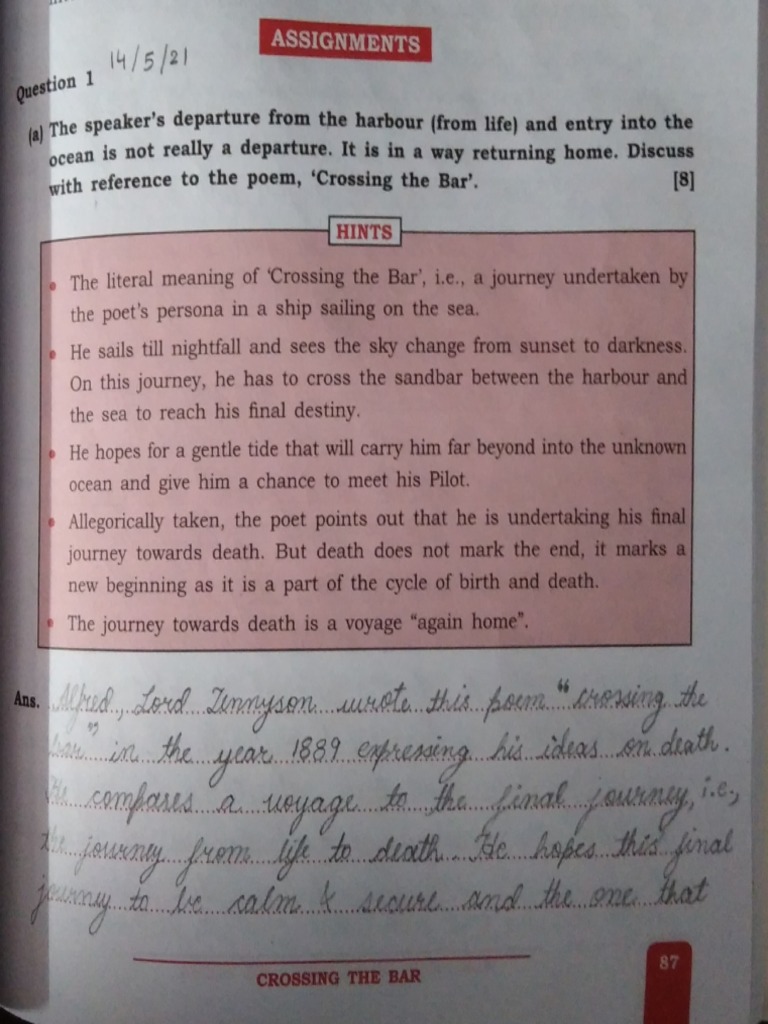 ASSIGNMENTS
14/5/21
Question 1
(a) The speaker's departure from the harbour (from life) and entry into the
ocean is not really a departure. It is in a way returning home. Discuss
with reference to the poem, 'Crossing the Bar'. [8]
HINTS
• The literal meaning of 'Crossing the Bar', i.e., a journey undertaken by
the poet's persona in a ship sailing on the sea.
• He sails till nightfall and sees the sky change from sunset to darkness.
On this journey, he has to cross the sandbar between the harbour and
the sea to reach his final destiny.
• He hopes for a gentle tide that will carry him far beyond into the unknown
ocean and give him a chance to meet his Pilot.
• Allegorically taken, the poet points out that he is undertaking his final
journey towards death. But death does not mark the end, it marks a
new beginning as it is a part of the cycle of birth and death.
• The journey towards death is a voyage "again home".
Ans. Alfred, Lord Tennyson wrote this poem "crossing the
bar" in the year 1889 expressing his ideas on death.
He compares a voyage to the final journey, i.e.,
the journey from life to death. He hopes this final
journey to be calm & secure and the one that
CROSSING THE BAR
87